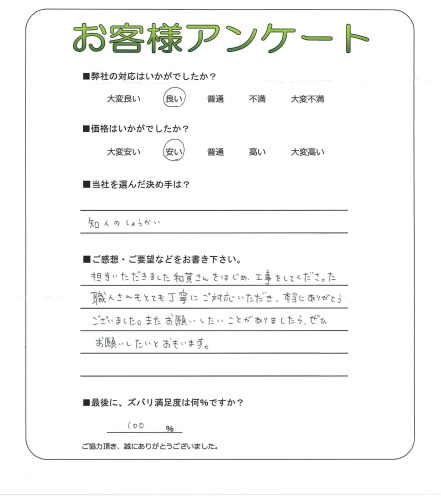 お客様アンケート
■弊社の対応はいかがでしたか？
大変良い 良い 普通 不満 大変不満
■価格はいかがでしたか？
大変安い 安い 普通 高い 大変高い
■当社を選んだ決め手は？
知人のしょうかい
■ご感想・ご要望などをお書き下さい。
担当いただきました和賀さんをはじめ、工事をしてくださった
職人さんもとても丁寧にご対応いただき、本当にありがとう
ございました。またお願いしたいことがありましたら、ぜひ
お願いしたいとおもいます。
■最後に、ズバリ満足度は何%ですか？
100 %
ご協力頂き、誠にありがとうございました。